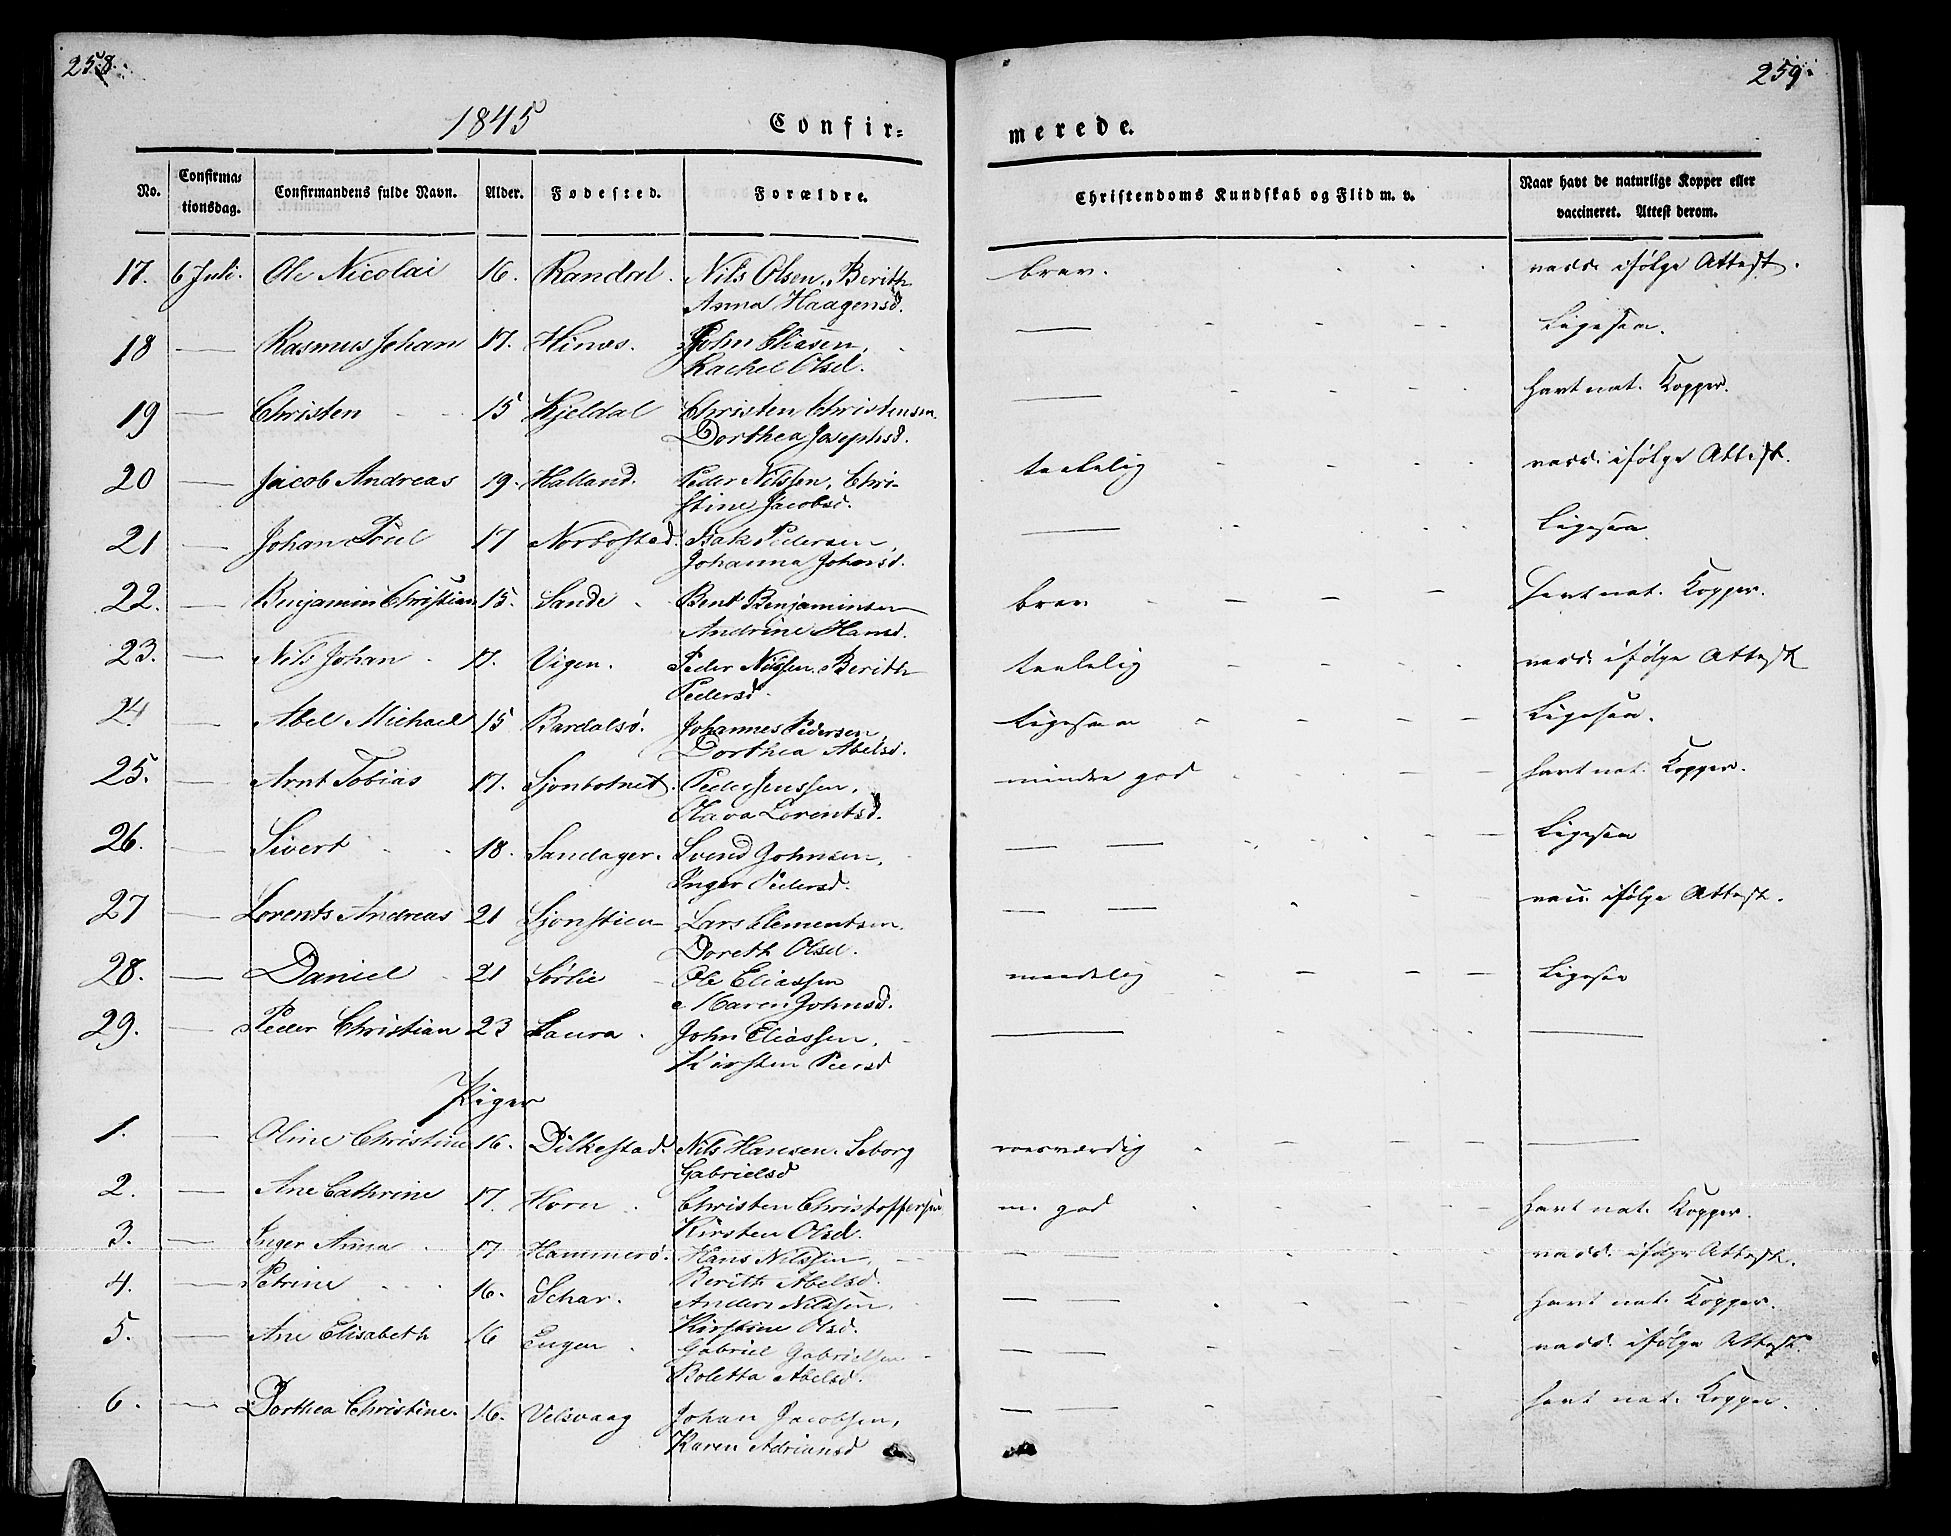 258.
259.
1845
Confir=
merede.
No.
Confirma=
tionsdag.
Confirmandens fulde Navn.
Alder.
Fødested.
Forældre.
Christendoms Kundskab og Flid m. v.
Naar havt de naturlige Kopper eller
vaccineret. Attest derom.
17. 6 Juli. Ole Nicolai 16. Randal. Nils Olsen, Berith brav. vacc. ifølge Attest.
Anna Haagensd.
18 — Rasmus Johan 17. Hinæs. John Eliasen, — Ligesaa.
Rachel Olsd.
19 — Christen 15 Kjeldal Christen Christensen — havt nat. Kopper.
Dorthea Josephsd.
20 — Jacob Andreas 19. Halland. Peder Nilssen, Chri- taalelig vacc. ifølge Attest.
stine Jacobsd.
21 — Johan Poul 17 Norbostad. Isak Pedersen, — Ligesaa.
Johanna Johansd.
22. — Benjamin Christian 15. Sande Bent Benjaminsen brav havt nat. Kopper.
Andrine Hansd.
23. — Nils Johan 17. Vigen. Peder Nilssen, Berith taalelig vacc. ifølge Attest
Pedersd.
24 — Abel Michael 15 Bardalsø. Johannes Pedersen, Ligesaa Ligesaa.
Dorthea Abelsd.
25. — Arnt Tobias 17. Sjonbotnet. Peder Jenssen, mindre god havt nat. Kopper.
Olava Lorentsd.
26. — Sivert 18. Sandager. Svend Johnsen, — — Ligesaa
Inger Pedersd.
27 — Lorents Andreas 21 Sjonstien Lars Clementsen. — — vacc. ifølge Attest.
Doreth Olsd.
28. — Daniel 21 Sørlie Ole Eliassen maadelig Ligesaa
Maren Johnsd.
29. — Peder Christian 23 Laura John Eliassen, — —
Kirsten Peersd
Piger
1. — Oline Christine 16. Dilkestad. Nils Hansen. Seborg roesværdig —
Gabrielsd
2. — Ane Cathrine 17. Horn Christen Christoffersen m. god havt nat. Kopper.
Kirsten Olsd.
3. — Inger Anna 17 Hammerø. Hans Nilssen, — — vacc. ifølge Attest.
Berith Abelsd.
4. — Petrine 16. Schar. Anders Nilssen, — — havt nat. Kopper.
Kirstine Olsd.
5. — Ane Elisabeth 16 Engen Gabriel Gabrielsen — — vacc. ifølge Attest.
Roletta Abelsd.
6. — Dorthea Christine. 16. Velsvaag Johan Jacobsen, — — havt nat. Kopper.
Karen Adriansd